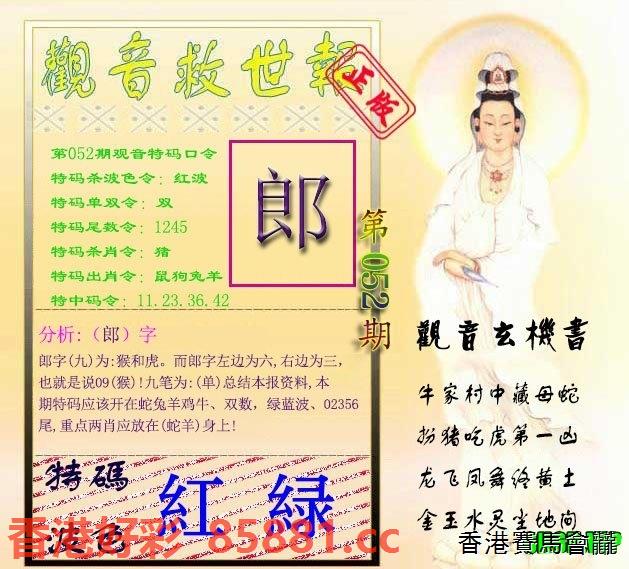 觀音救世報
正版
第052期观音特码口令
特码杀波色令：红波
特码单双令：双
特码尾数令：1245
特码杀肖令：猪
特码出肖令：鼠狗兔羊
特中码令：11.23.36.42
郎
第052期
分析:（郎）字
郎字(九)为:猴和虎。而郎字左边为六,右边为三,
也就是说09(猴)!九笔为:(单)总结本报资料,本
期特码应该开在蛇兔羊鸡牛、双数，绿蓝波、02356
尾,重点两肖应放在(蛇羊)身上!
特碼
波色
紅 绿
觀音玄機書
牛家村中藏母蛇
扮猪吃虎第一凶
龙飞凤舞终黄土
金玉水灵坐地间
香港好彩 85881.cc
香港賽馬會